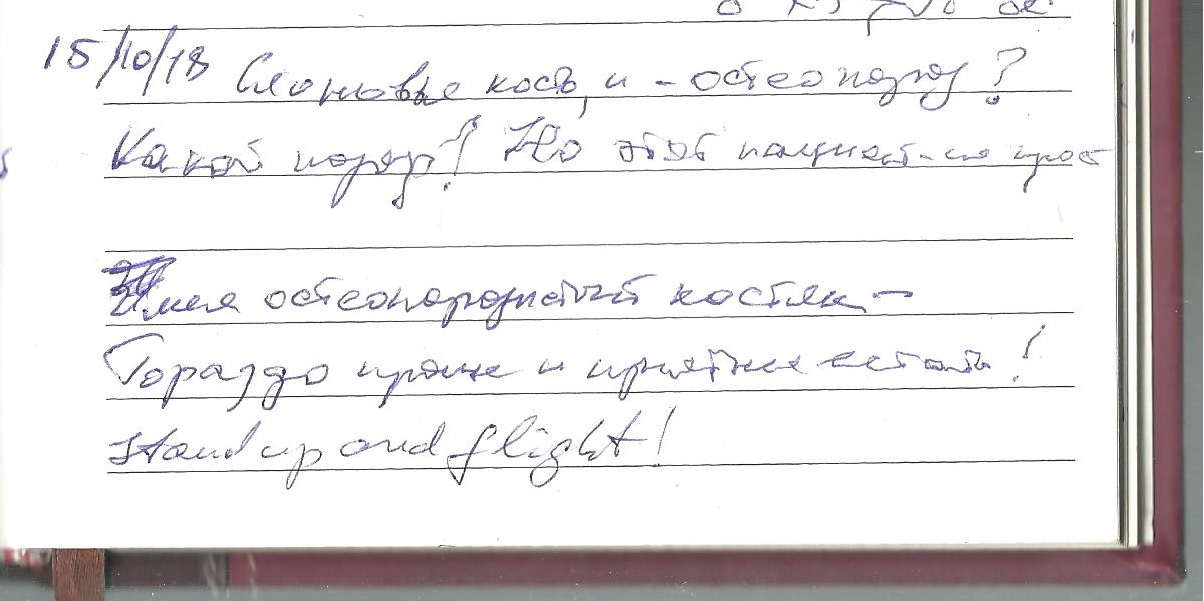 15/10/18 Слоновье кость, и - остеопороз?
Какой пород! Но этот пациент - не прост
Имея остеопорозистый костяк -
Гораздо проще и приятнее летать!
Stand up and flight!